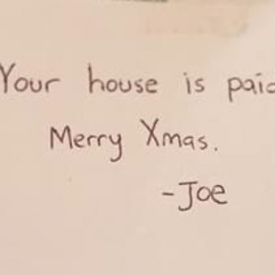 Your house is paid
Merry Xmas.
-Joe